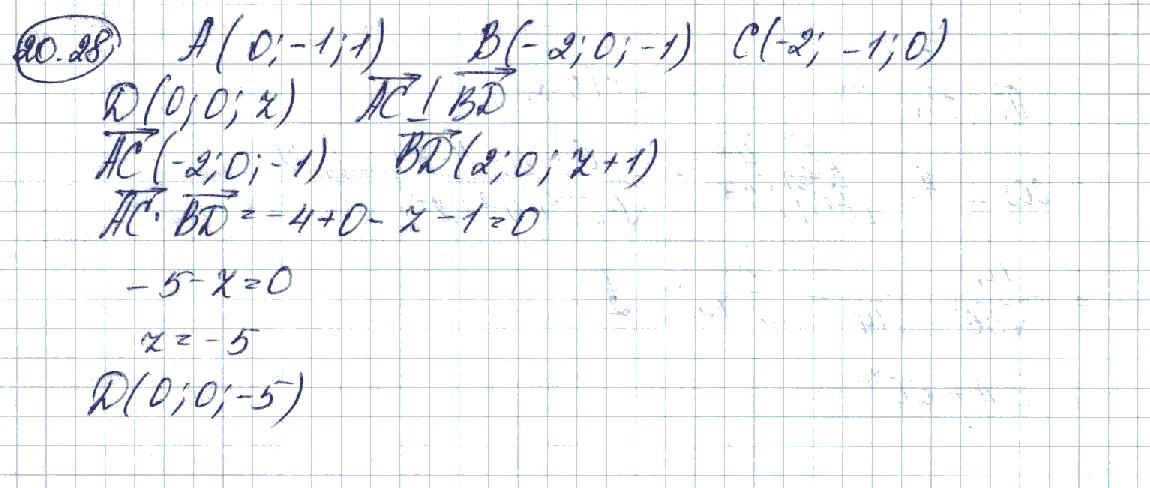 20.28 A(0;-1;1) B(-2;0;-1) C(-2;-1;0)
D(0;0;z) AC⃗ ⊥ BD⃗
AC⃗(-2;0;-1) BD⃗(2;0;z+1)
AC⃗·BD⃗=-4+0-z-1=0
-5-z=0
z=-5
D(0;0;-5)